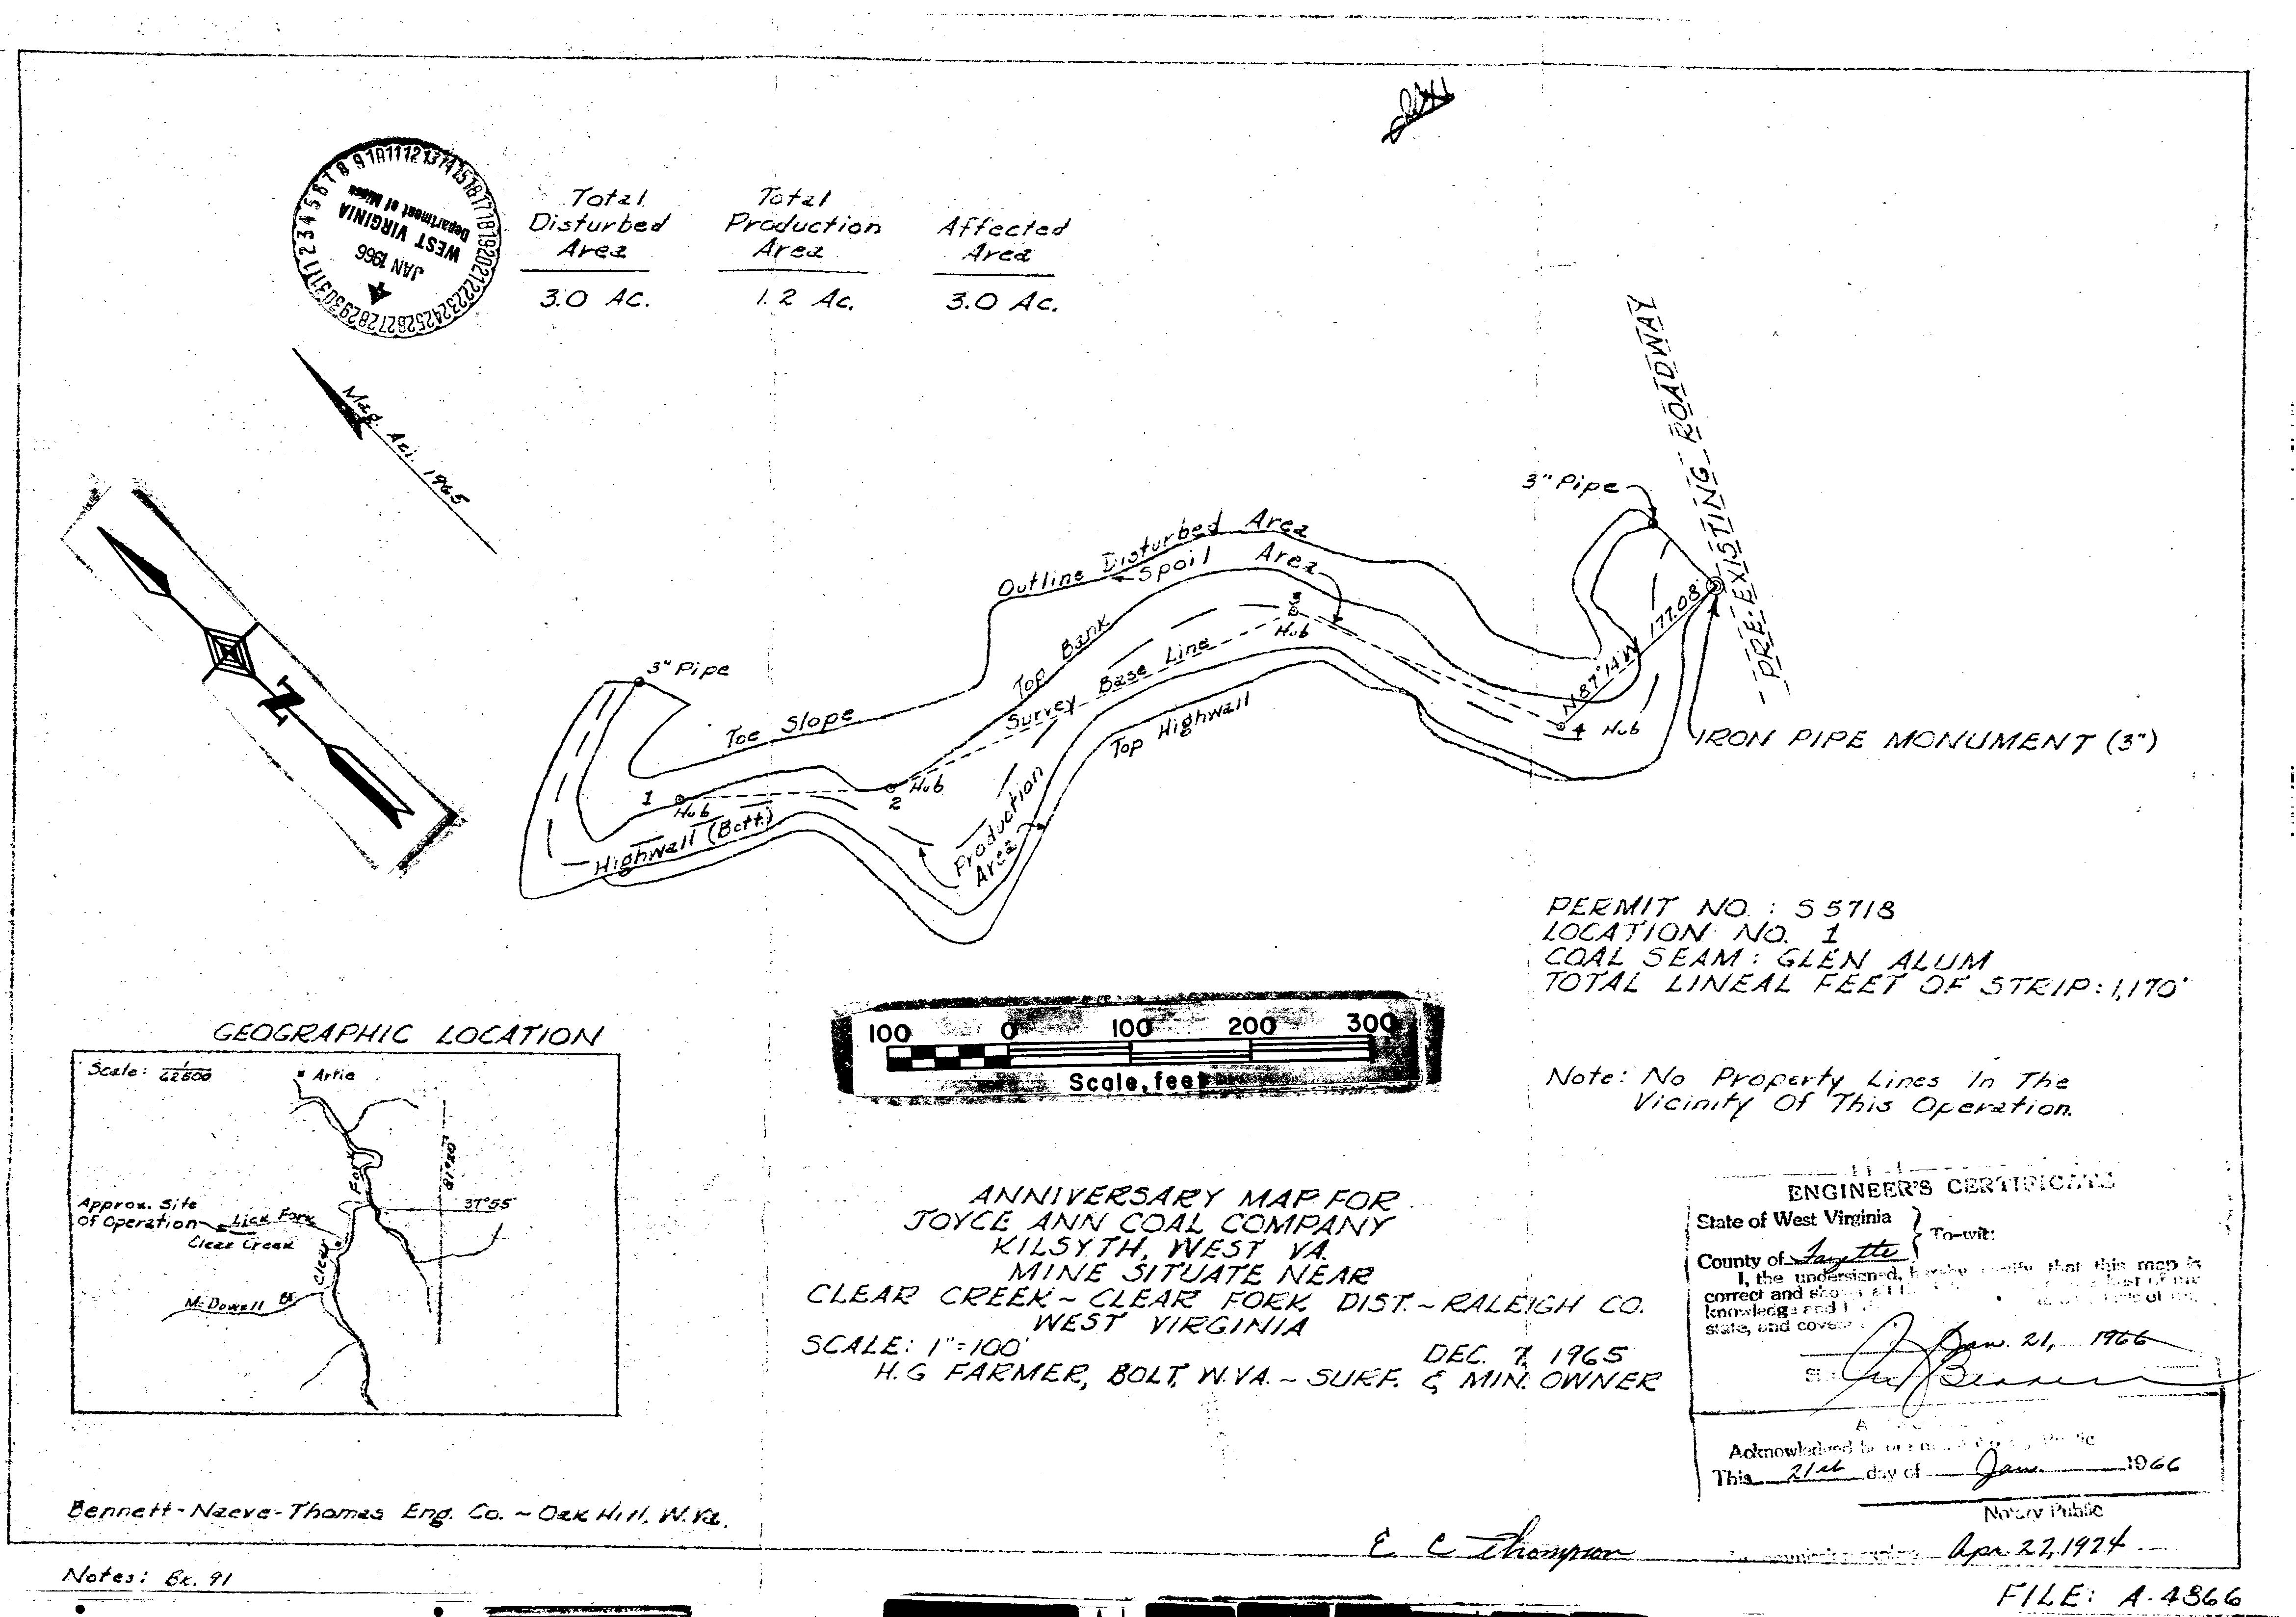 1 2 3 4 5 6 7 8 9 10 11 12 13 14 15 16 17 18 19 20 21 22 23 24 25 26 27 28 29 30 31
WEST VIRGINIA
Department of Mines
JAN 1966
Total Disturbed Area
3.0 Ac.
Total Production Area
1.2 Ac.
Affected Area
3.0 Ac.
1965
N
PRE-EXISTING ROADWAY
3" Pipe
Outline Disturbed Area
Spoil Area
Top Bank
Survey Base Line
3
Hub
177.08'
N87°14'W
4 Hub
IRON PIPE MONUMENT (3")
3" Pipe
Toe Slope
Top Highwall
1
Hub
2
Hub
Highwall (Bott.)
Production Area
PERMIT NO.: S5718
LOCATION NO. 1
COAL SEAM: GLEN ALUM
TOTAL LINEAL FEET OF STRIP: 1,170'
100 0 100 200 300
Scale, feet
Note: No Property Lines In The
Vicinity Of This Operation.
GEOGRAPHIC LOCATION
Scale: 1/62500
Artie
Fork
81°20'
37°55'
Approx. Site
Of Operation
Lick Fork
Clear Creek
Clear
McDowell Br.
ANNIVERSARY MAP FOR
JOYCE ANN COAL COMPANY
KILSYTH, WEST VA.
MINE SITUATE NEAR
CLEAR CREEK ~ CLEAR FORK DIST. ~ RALEIGH CO.
WEST VIRGINIA
SCALE: 1"=100' DEC. 7, 1965
H.G FARMER, BOLT, W.VA. ~ SURF. & MIN. OWNER
ENGINEER'S CERTIFICATE
State of West Virginia
To-wit:
County of Fayette
I, the undersigned, hereby certify that this map is
correct and shows all
knowledge and
state, and
Jan. 21, 1966
Acknowledged
This 21st day of Jan. 1966
Notary Public
Apr. 27, 1974
E C Thompson
Bennett-Naeve-Thomas Eng. Co. ~ Oak Hill, W.Va.
Notes: Bk. 91
FILE: A-4866